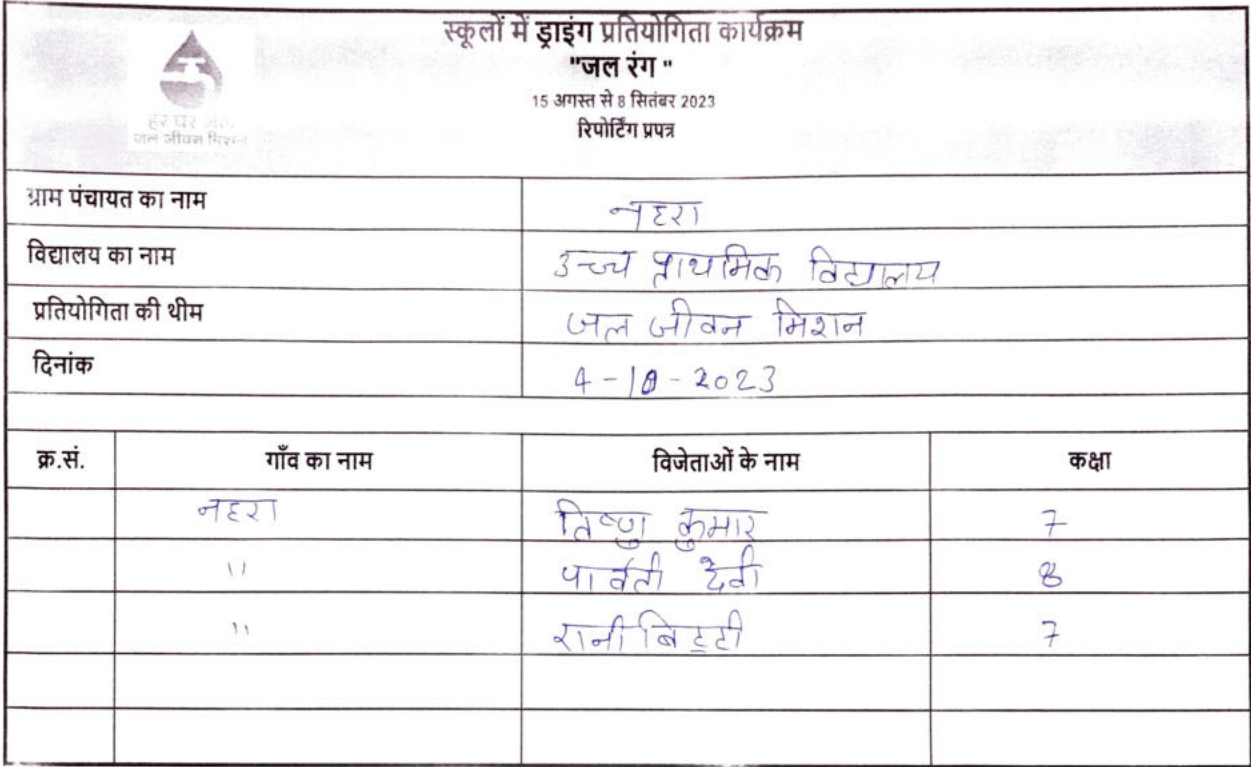 स्कूलों में ड्राइंग प्रतियोगिता कार्यक्रम
"जल रंग "
15 अगस्त से 8 सितंबर 2023
रिपोर्टिंग प्रपत्र
हर घर जल
जल जीवन मिशन
ग्राम पंचायत का नाम नहरा
विद्यालय का नाम उच्च प्राथमिक विद्यालय
प्रतियोगिता की थीम जल जीवन मिशन
दिनांक 4-10-2023
क्र.सं. गाँव का नाम विजेताओं के नाम कक्षा
नहरा विष्णु कुमार 7
" पार्वती देवी 8
" रानी बिट्टी 7